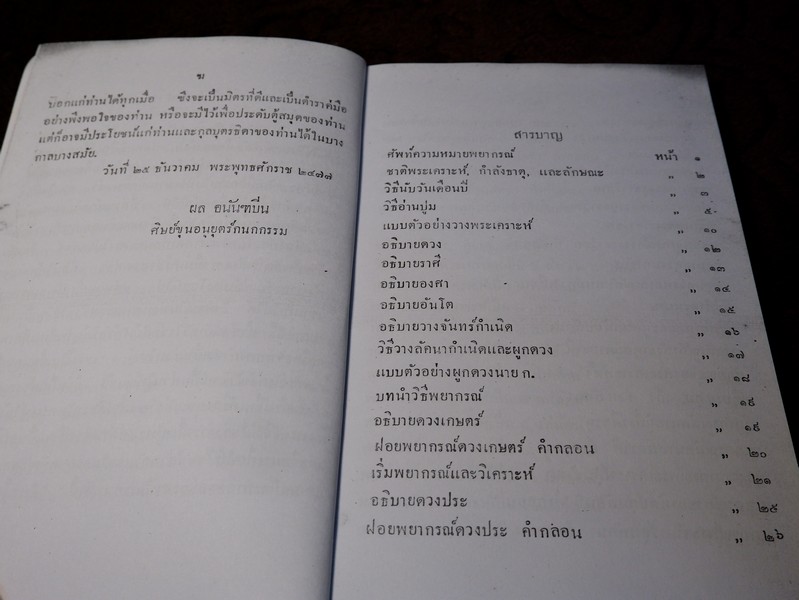 ฆ
บอกแก่ท่านได้ทุกเมื่อ ซึ่งจะเป็นมิตรที่ดีและเป็นตำราคู่มือ
อย่างพึงพลใจของท่าน หรือจะมีไว้เพื่อประดับตู้สมุดของท่าน
แต่ก็อาจมีประโยชน์แก่ท่านและกุลบุตรธิดาของท่านได้ในบาง
กาลบางสมัย.
วันที่ ๒๕ ธันวาคม พระพุทธศักราช ๒๔๗๗
ผล อนันฑบึน
ศิษย์ขุนอนุยุตร์กนกกรรม
สารบาญ
ศัพท์ความหมายพยากรณ์ หน้า ๑
ชาติพระเคราะห์, กำลังธาตุ, และลักษณะ " ๒
วิธีนับวันเดือนปี " ๓
วิธีอ่านปูม " ๕
แบบตัวอย่างวางพระเคราะห์ " ๑๐
อธิบายดวง " ๑๒
อธิบายราศี " ๑๓
อธิบายองศา " ๑๔
อธิบายอันโต " ๑๕
อธิบายวางจันทร์กำเนิด " ๑๖
วิธีวางลัคนากำเนิดและผูกดวง " ๑๗
แบบตัวอย่างผูกดวงนาย ก. " ๑๘
บทนำวิธีพยากรณ์ " ๑๙
อธิบายดวงเกษตร์ " ๑๙
ฝอยพยากรณ์ดวงเกษตร์ คำกลอน " ๒๐
เริ่มพยากรณ์และวิเคราะห์ " ๒๑
อธิบายดวงประ " ๒๕
ฝอยพยากรณ์ดวงประ คำกลอน " ๒๖